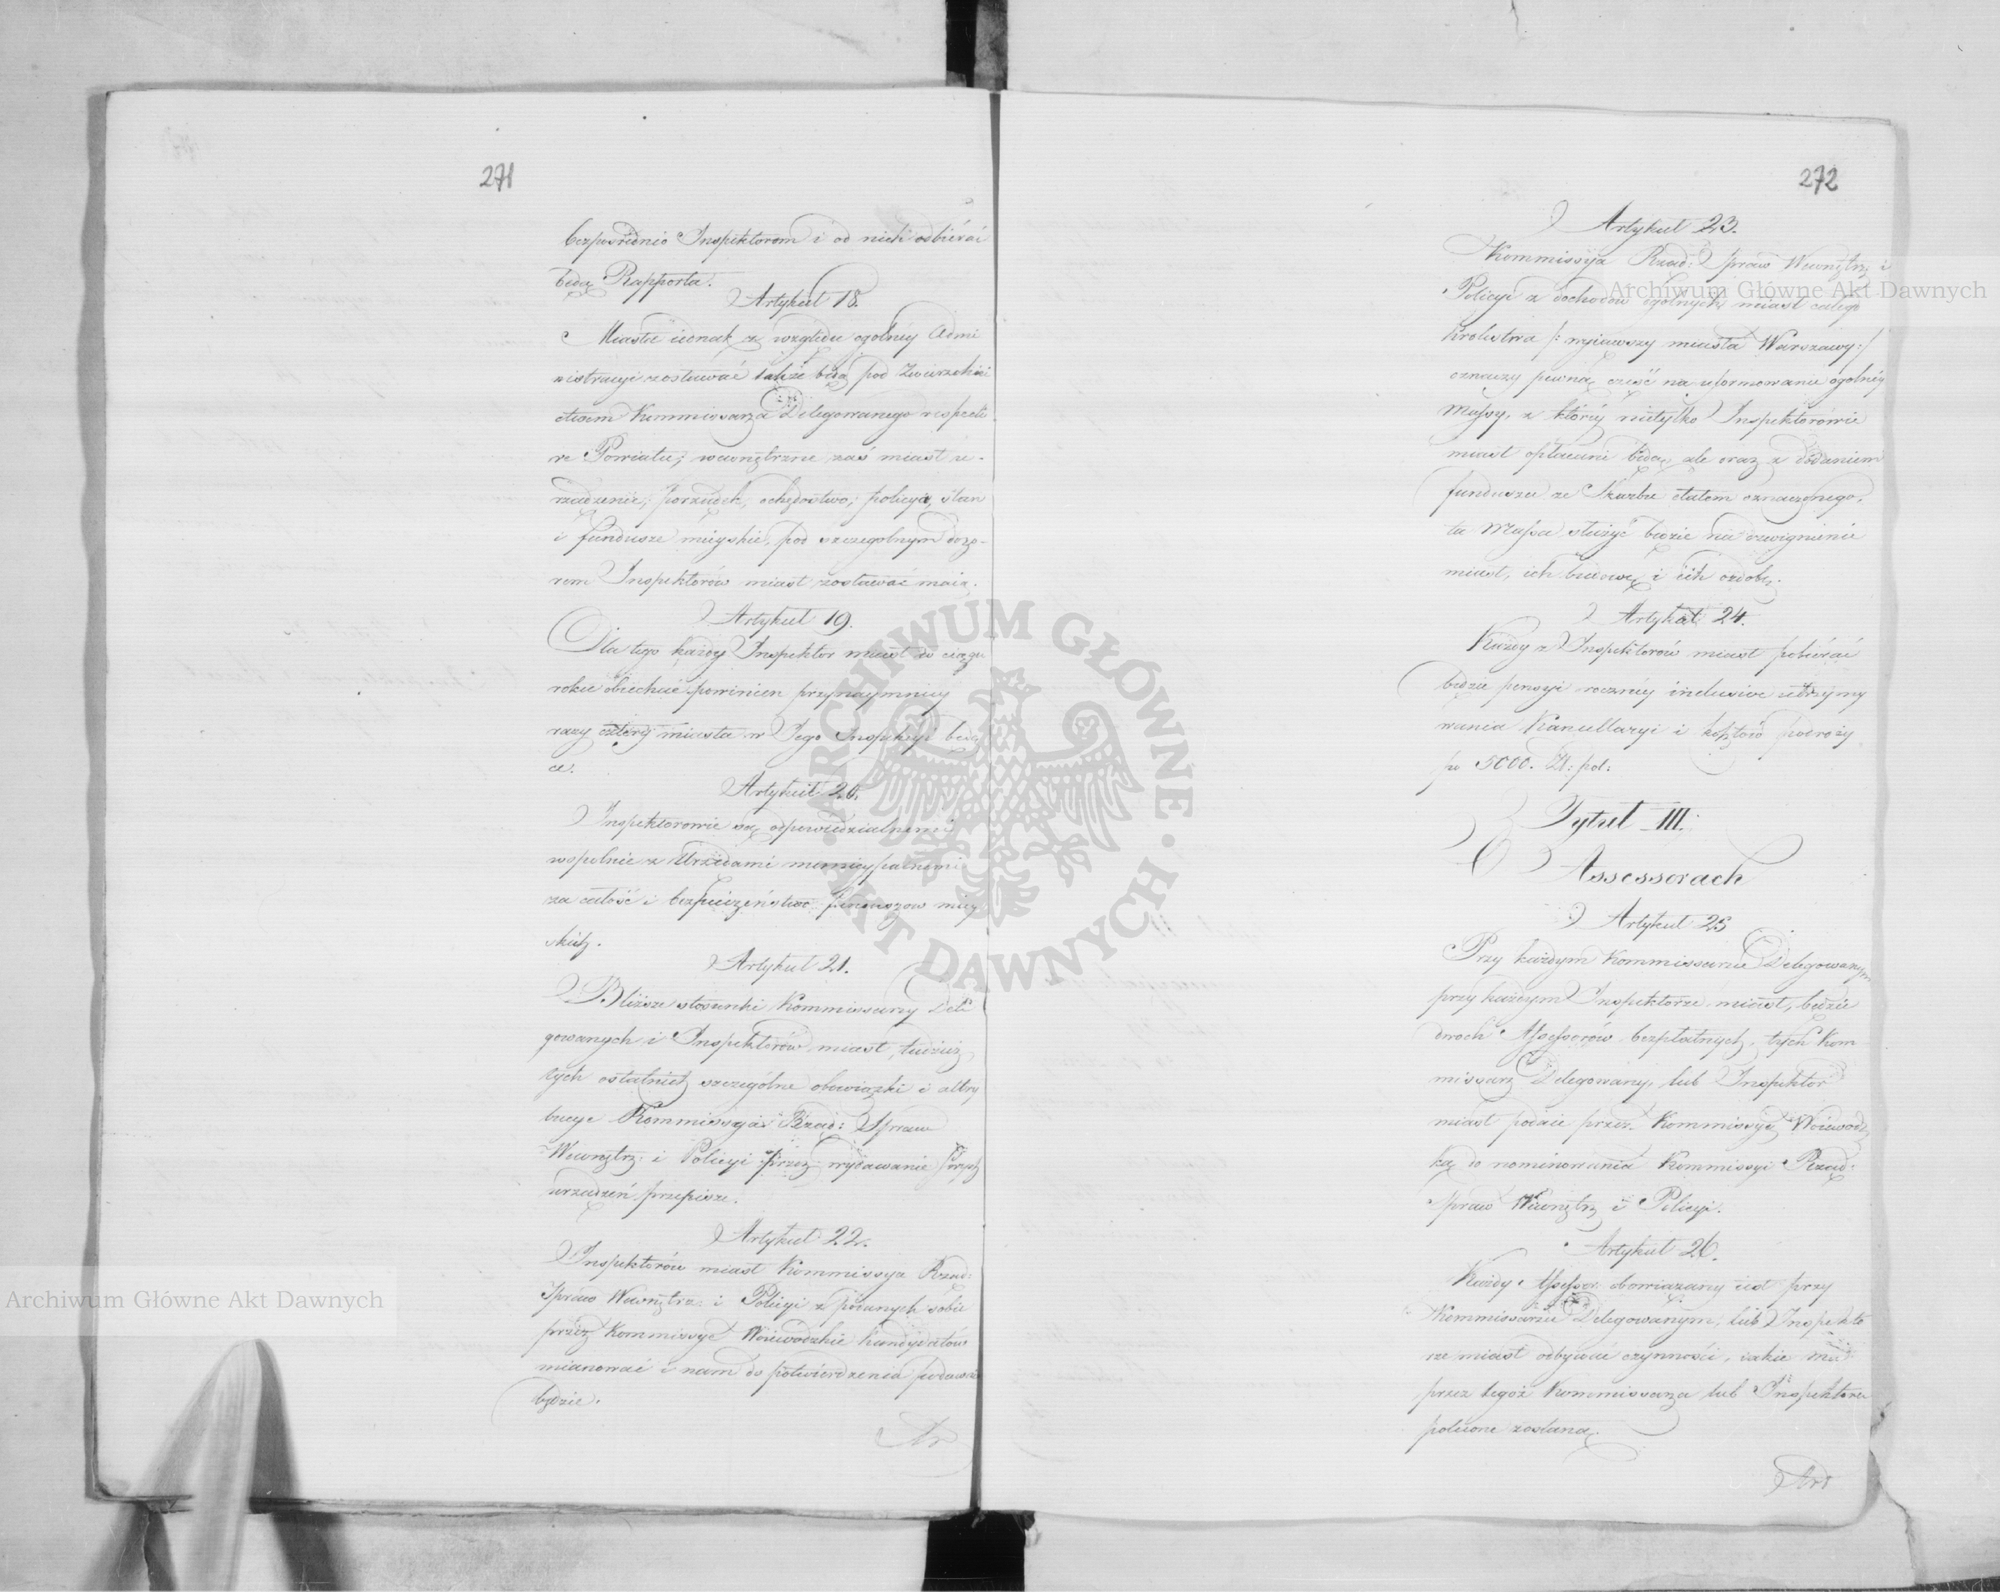 271
bezpośrednio Inspektorom i od nich odbierać
będą Rapporta.
Artykuł 18.
Miasta iednak z względu ogólnéy Admi
nistracyi zostawać także będą pod zwierzchni
ctwem Kommissarza Delegowanego respecti
ve Powiatu; wewnętrzne zaś miast u-
rządzenie, porządek, ochędostwo, policya, stan
i fundusze mieyskie, pod szczególnym dozo-
rem Inspektorów miast zostawać maią.
Artykuł 19.
Dla tego każdy Inspektor miast w ciągu
roku obiechać powinien przynaymniey
razy cztery miasta w Jego Inspekcyi będą
ce.
Artykuł 20.
Inspektorowie są odpowiedzialnemi
wspólnie z Urzędami municypalnemi
za całość i bezpieczeństwo funduszow miey
skich.
Artykuł 21.
Bliższe stosunki Kommissarzy Dele
gowanych i Inspektorów miast, tudzież
tych ostatnich szczególne obowiązki i attry
bucye Kommissya Rząd: Spraw
Wewnętrz: i Policyi przez wydawanie
urządzeń przepisze.
Artykuł 22.
Inspektorów miast Kommissya Rząd:
Spraw Wewnętrz: i Policyi z podanych sobie
przez Kommissye Woiewodzkie kandydatów
mianować i nam do potwierdzenia podawać
będzie.
Ar
272
Artykuł 23.
Kommissya Rząd: Spraw Wewnętrz i
Policyi z dochodów ogólnych miast całego
Królestwa /: wyiąwszy miasta Warszawy :/
oznaczy pewną część na uformowanie ogólnéy
Massy, z któréy nietylko Inspektorowie
miast opłacani będą, ale oraz z dodaniem
funduszu ze Skarbu etatem oznaczonego,
ta Massa służyć będzie na dzwignienie
miast, ich budowę i ich ozdobę.
Artykuł 24.
Każdy z Inspektorów miast pobiérać
będzie pensyi rocznéy inclusive utrzymy
wania Kancellaryi i kosztów podróży
po 5000. Zł: pol:
Tytuł III.
O Assessorach
Artykuł 25
Przy każdym Kommissarzu Delegowanym
przy każdym Inspektorze miast, będzie
dwóch Assessorów bezpłatnych, tych Kom
missarz Delegowany, lub Inspektor
miast podaie przez Kommissyą Woiewodz
ką do nominowania Kommissyi Rząd:
Spraw Wewnętrz i Policyi.
Artykuł 26.
Każdy Assessor obowiązany iest przy
Kommissarzu Delegowanym, lub Inspekto
rze miast odbywać czynności, iakie mu
przez tegoż Kommissarza lub Inspektora
polecone zostaną.
Art
Archiwum Główne Akt Dawnych
Archiwum Główne Akt Dawnych
ARCHIWUM GŁÓWNE · AKT DAWNYCH ·